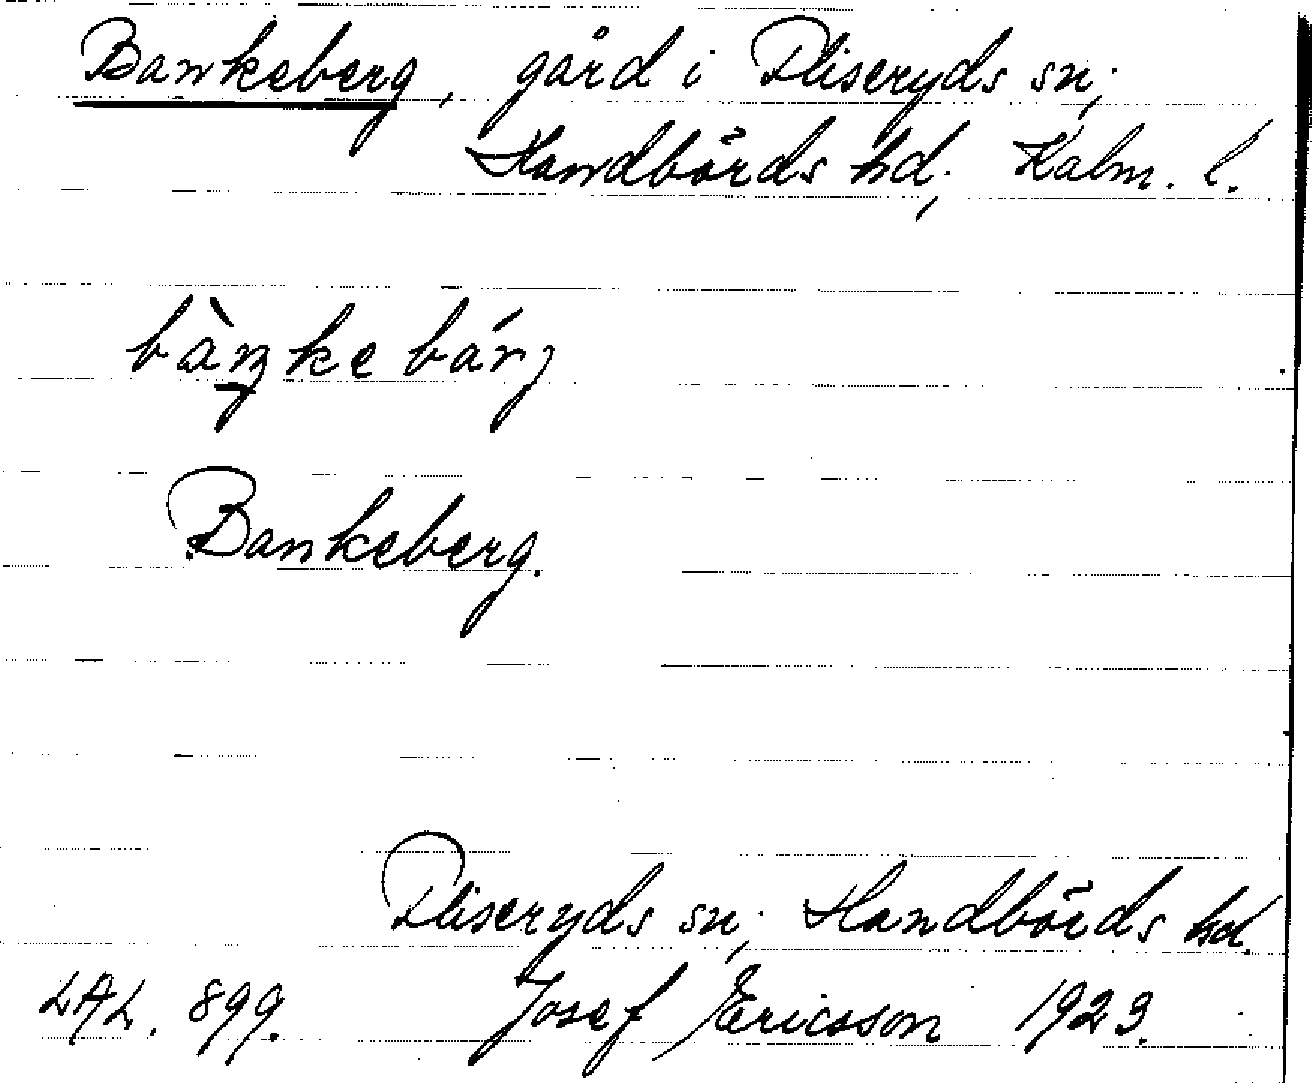 Bankeberg, gård i Pliseryds sn;
Handbörds hd, Kalm. l.
bàŋke bárj
Bankeberg.
Pliseryds sn; Handbörds hd.
LAL. 899. Josef Ericsson 1923.